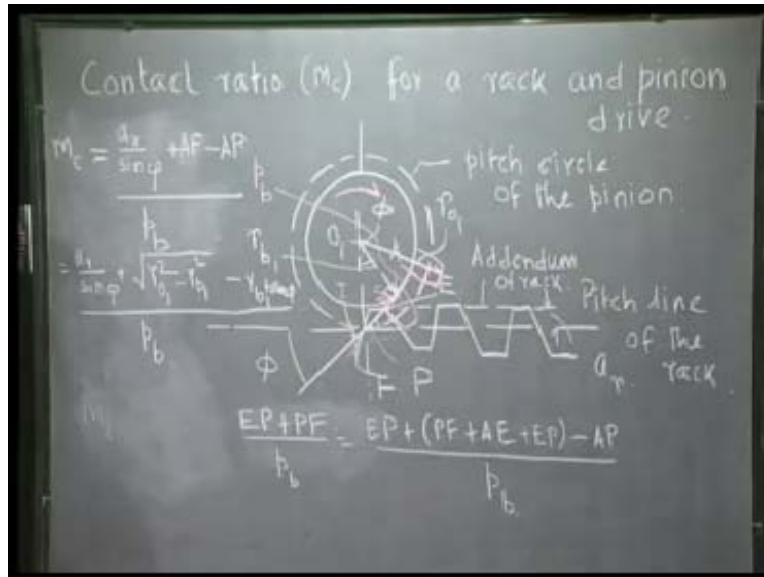 Contact ratio (mc) for a rack and pinion
drive.
mc = ar/sinφ + AF - AP
pb
= ar/sinφ + √(ro1² - rb1²) - rb1 tanφ
pb
pb
rb1
O1
φ
A
ro1
pitch circle
of the pinion
Addendum
of rack
Pitch line
of the
rack
ar
φ
F P
EP+PF / pb = EP+(PF+AE+EP)-AP / pb